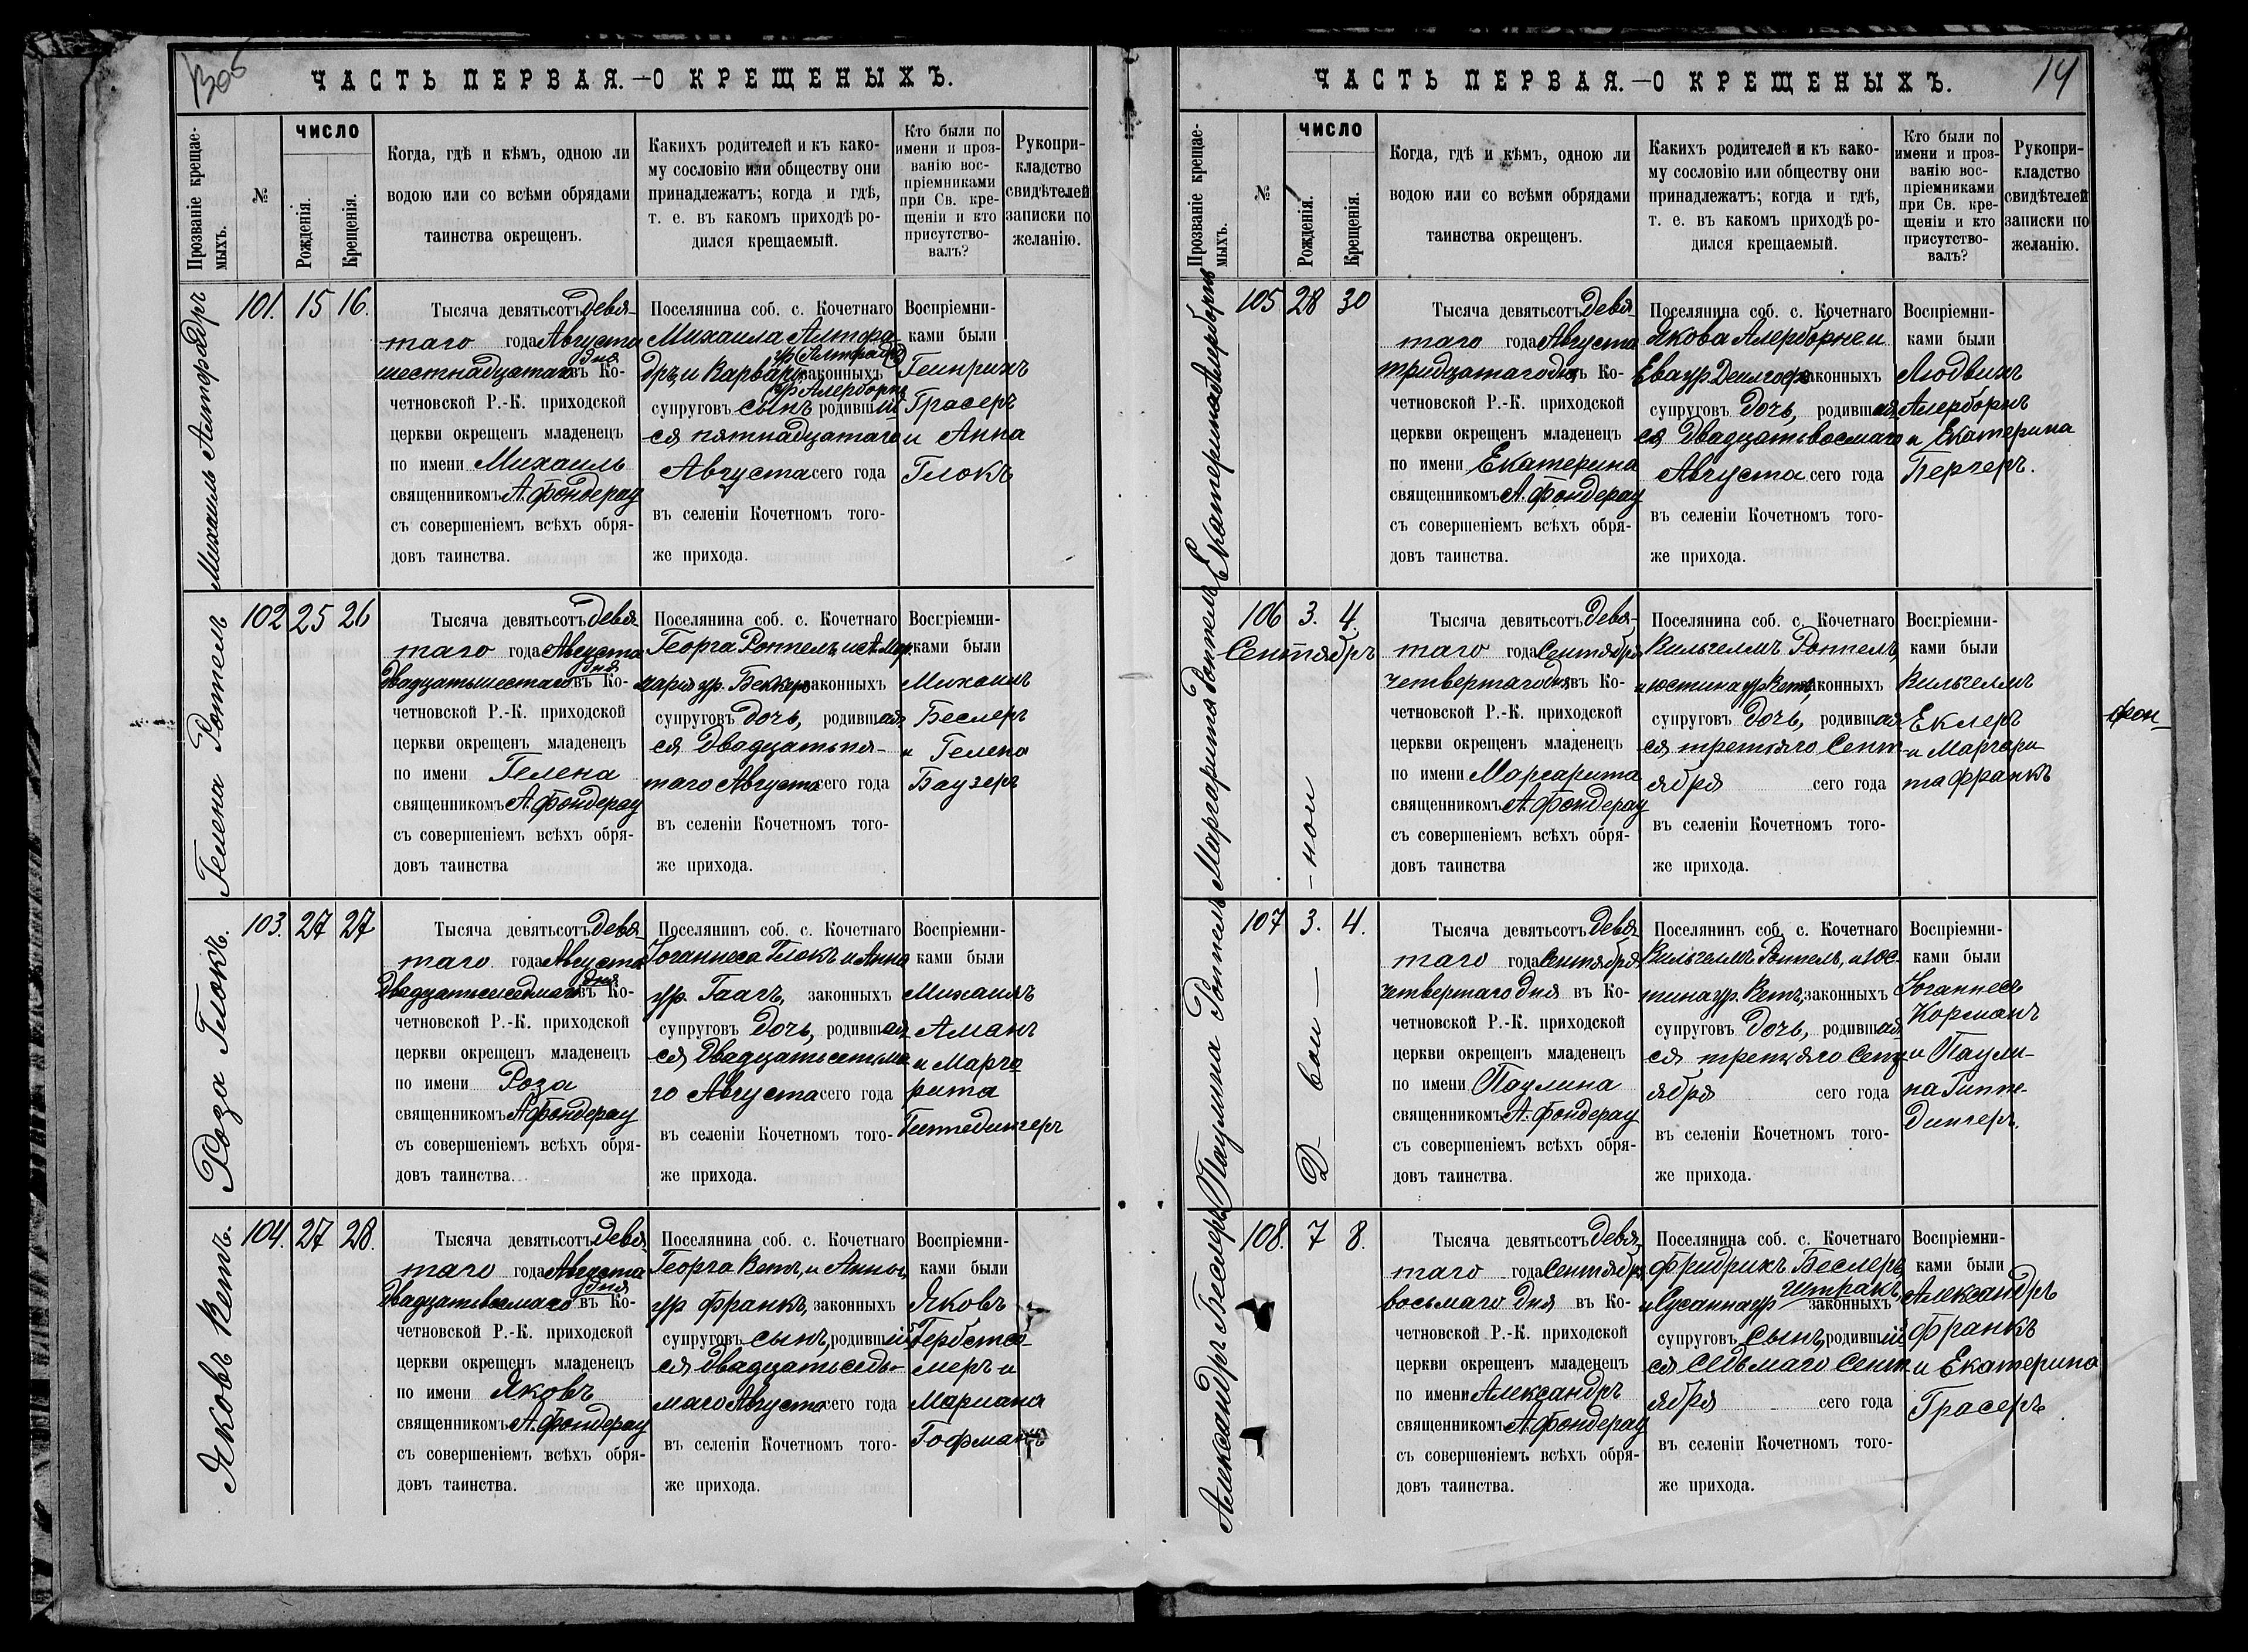 ЧАСТЬ ПЕРВАЯ.—О КРЕЩЕНЫХЪ.
Прозваніе крещае-
мыхъ.
№
ЧИСЛО
Рожденія.
Крещенія.
Когда, гдѣ и кѣмъ, одною ли
водою или со всѣми обрядами
таинства окрещенъ.
Какихъ родителей и къ како-
му сословію или обществу они
принадлежатъ; когда и гдѣ,
т. е. въ какомъ приходѣ ро-
дился крещаемый.
Кто были по
имени и проз-
ванію вос-
пріемниками
при Св. кре-
щеніи и кто
присутство-
валъ?
Рукопри-
кладство
свидѣтелей
записки по
желанію.
Михаилъ Алтфадръ
101. 15 16.
Тысяча девятьсотъ девя-
таго года Августа
шестнадцатаго дня въ Ко-
четновской Р.-К. приходской
церкви окрещенъ младенецъ
по имени Михаилъ
священникомъ А. Фондерау
съ совершеніемъ всѣхъ обря-
довъ таинства.
Поселянина соб. с. Кочетнаго
Михаила Алтфа-
дръ, и Варвары законныхъ
ур. Алерборнъ
супруговъ сынъ родившій
ся пятнадцатаго
Августа сего года
въ селеніи Кочетномъ того-
же прихода.
Воспріемни-
ками были
Генрихъ
Грасеръ
и Анна
Глокъ
Гелена Роппель
102 25 26
Тысяча девятьсотъ девя-
таго года Августа
двадцатьшестаго дня въ Ко-
четновской Р.-К. приходской
церкви окрещенъ младенецъ
по имени Гелена
священникомъ А. Фондерау
съ совершеніемъ всѣхъ обря-
довъ таинства
Поселянина соб. с. Кочетнаго
Георга Роппель и
марія ур. Беккеръ законныхъ
супруговъ дочь, родившая
ся двадцатьпя-
таго Августа сего года
въ селеніи Кочетномъ того-
же прихода.
Воспріемни-
ками были
Михаилъ
Беслеръ
и Гелена
Баузеръ
Роза Глокъ.
103. 27 27
Тысяча девятьсотъ девя-
таго года Августа
двадцатьседьмаго дня въ Ко-
четновской Р.-К. приходской
церкви окрещенъ младенецъ
по имени Роза
священникомъ А. Фондерау
съ совершеніемъ всѣхъ обря-
довъ таинства.
Поселянинъ соб. с. Кочетнаго
Іоганнеса Глокъ и Анна
ур. Гаагъ, законныхъ
супруговъ дочь, родившая
ся двадцатьседьма-
го Августа сего года
въ селеніи Кочетномъ того-
же прихода.
Воспріемни-
ками были
Михаилъ
Аманъ
и Марга
рита
Гиппедингеръ
Яковъ Кетъ.
104. 27 28.
Тысяча девятьсотъ девя-
таго года Августа
двадцатьвосмаго дня въ Ко-
четновской Р.-К. приходской
церкви окрещенъ младенецъ
по имени Яковъ
священникомъ А. Фондерау
съ совершеніемъ всѣхъ обря-
довъ таинства.
Поселянина соб. с. Кочетнаго
Георга Кетъ, и Анны,
ур Франкъ, законныхъ
супруговъ сынъ, родившій
ся двадцатьседь-
маго Августа сего года
въ селеніи Кочетномъ того-
же прихода.
Воспріемни-
ками были
Яковъ
Гербстсо-
меръ и
Мариана
Гофманъ
ЧАСТЬ ПЕРВАЯ.—О КРЕЩЕНЫХЪ.
14
Прозваніе крещае-
мыхъ.
№
ЧИСЛО
Рожденія.
Крещенія.
Когда, гдѣ и кѣмъ, одною ли
водою или со всѣми обрядами
таинства окрещенъ.
Какихъ родителей и къ како-
му сословію или обществу они
принадлежатъ; когда и гдѣ,
т. е. въ какомъ приходѣ ро-
дился крещаемый.
Кто были по
имени и проз-
ванію вос-
пріемниками
при Св. кре-
щеніи и кто
присутство-
валъ?
Рукопри-
кладство
свидѣтелей
записки по
желанію.
Екатерина Алерборнъ
105 28 30
Тысяча девятьсотъ девя-
таго года Августа
тридцатаго дня въ Ко-
четновской Р.-К. приходской
церкви окрещенъ младенецъ
по имени Екатерина
священникомъ А. Фондерау
съ совершеніемъ всѣхъ обря-
довъ таинства.
Поселянина соб. с. Кочетнаго
Якова Алерборне и
Ева ур законныхъ
супруговъ дочь, родившая
ся двадцатьвосмаго
Августа сего года
въ селеніи Кочетномъ того-
же прихода.
Воспріемни-
ками были
Людвихъ
Алерборнъ
и Екатерина
Бергеръ.
Маргарита Роппель
106 3. 4.
Сентябрь
Тысяча девятьсотъ девя-
таго года Сентября
четвертаго дня въ Ко-
четновской Р.-К. приходской
церкви окрещенъ младенецъ
по имени Маргарита
священникомъ А. Фондерау
съ совершеніемъ всѣхъ обря-
довъ таинства
Поселянина соб. с. Кочетнаго
Вильгелмъ Роппель,
и Юстина ур Кетъ, законныхъ
супруговъ дочь, родившая
ся третьяго Сент-
ября сего года
въ селеніи Кочетномъ того-
же прихода.
Воспріемни-
ками были
Вильгелмъ
Еклеръ
и Маргари-
та Франкъ
фон-
Д- вои — - нои
Паулина Роппель
107 3. 4.
Тысяча девятьсотъ девя-
таго года Сентября
четвертаго дня въ Ко-
четновской Р.-К. приходской
церкви окрещенъ младенецъ
по имени Паулина
священникомъ А. Фондерау
съ совершеніемъ всѣхъ обря-
довъ таинства.
Поселянинъ соб. с. Кочетнаго
Вильгелмъ Роппель, и Юс-
тина ур. Кетъ, законныхъ
супруговъ дочь, родившая
ся третьяго Сент-
ября сего года
въ селеніи Кочетномъ того-
же прихода.
Воспріемни-
ками были
Іоганнесъ
Корманъ
и Паули-
на Гиппе-
дингеръ.
Александръ Беслеръ
108. 7 8.
Тысяча девятьсотъ девя-
таго года Сентября
восьмаго дня въ Ко-
четновской Р.-К. приходской
церкви окрещенъ младенецъ
по имени Александръ
священникомъ А. Фондерау
съ совершеніемъ всѣхъ обря-
довъ таинства.
Поселянина соб. с. Кочетнаго
Фридрихъ Беслеръ,
и Сусанна ур Штракъ, законныхъ
супруговъ сынъ, родившій
ся седьмаго Сент-
ября сего года
въ селеніи Кочетномъ того-
же прихода.
Воспріемни-
ками были
Александръ
Франкъ
и Екатерина
Грасеръ